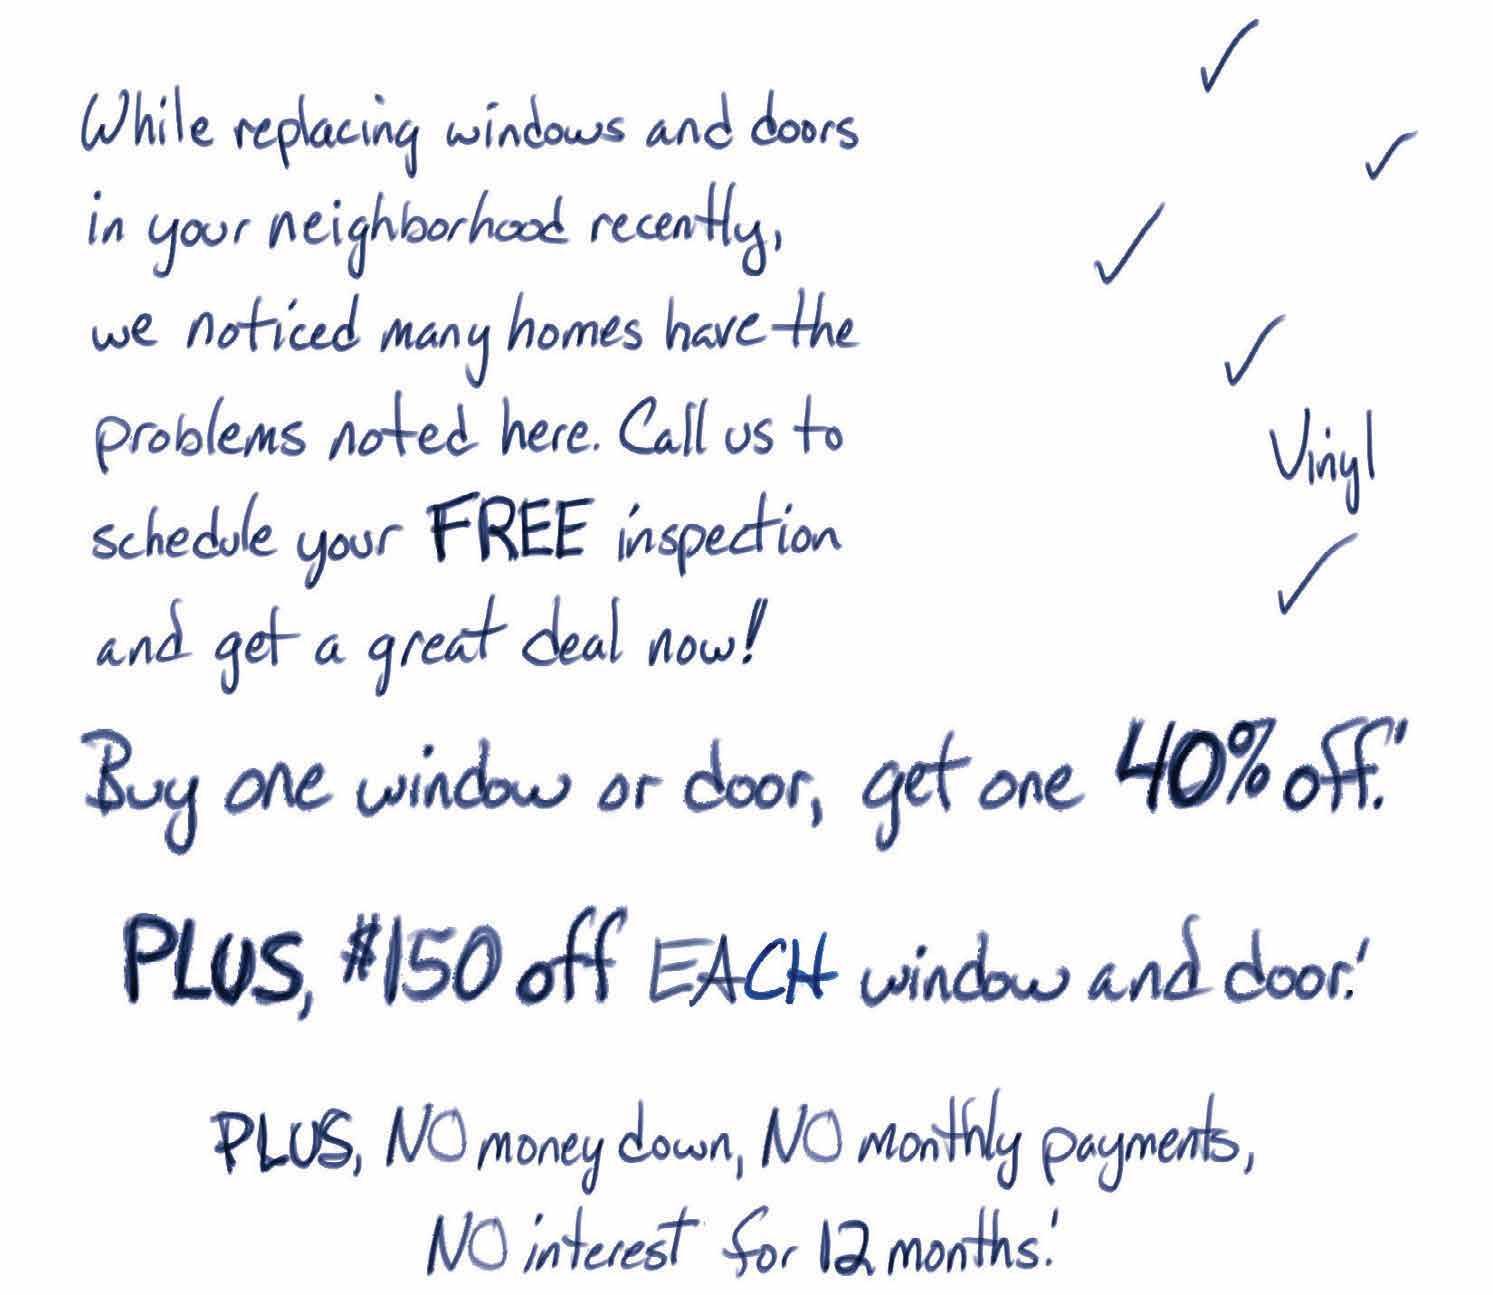 While replacing windows and doors
in your neighborhood recently,
we noticed many homes have the
problems noted here. Call us to
Vinyl
schedule your FREE inspection
and get a great deal now!
Buy one window or door, get one 40% off.¹
PLUS, $150 off EACH window and door.¹
PLUS, NO money down, NO monthly payments,
NO interest for 12 months.¹